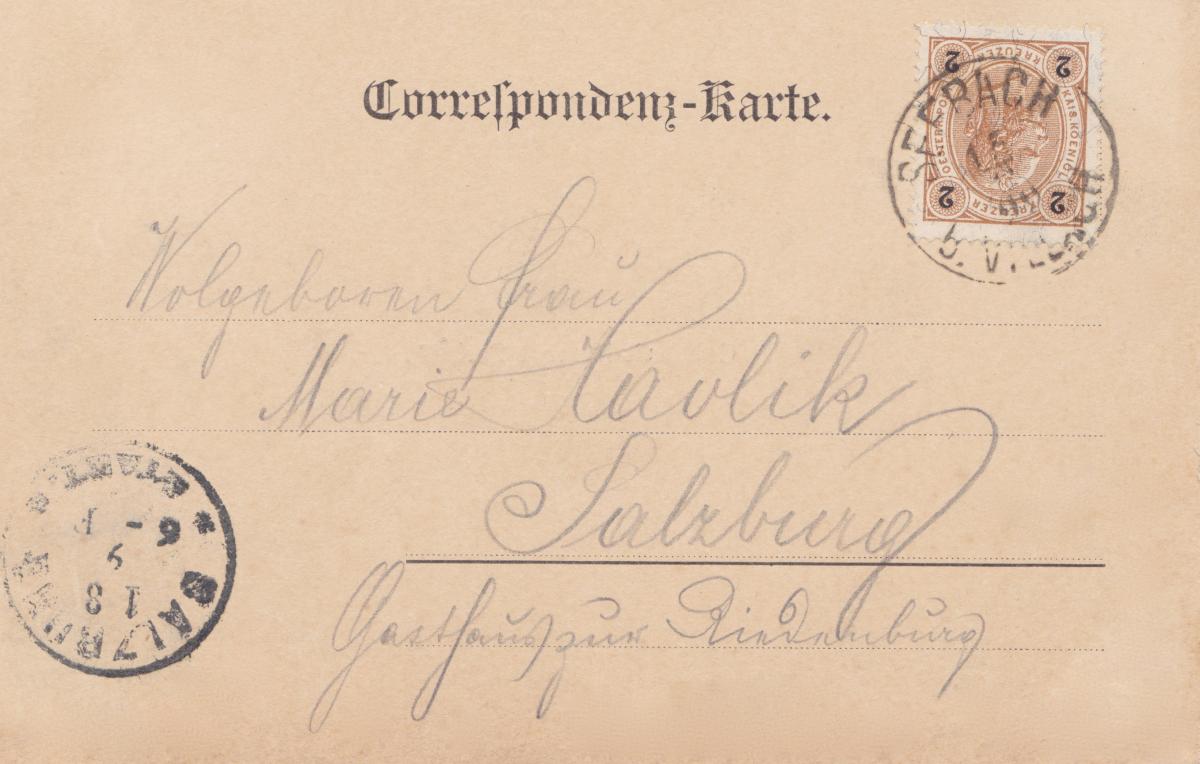 Correspondenz-Karte.
2 KREUZER 2
KAIS. KOENIGL.
2 KREUZER 2
SEEBACH
b. VILLACH
Wolgeboren Frau
Marie Pavlik
Salzburg
Gasthaus zur Riedenburg
SALZBURG
STADT
18
9
6 -